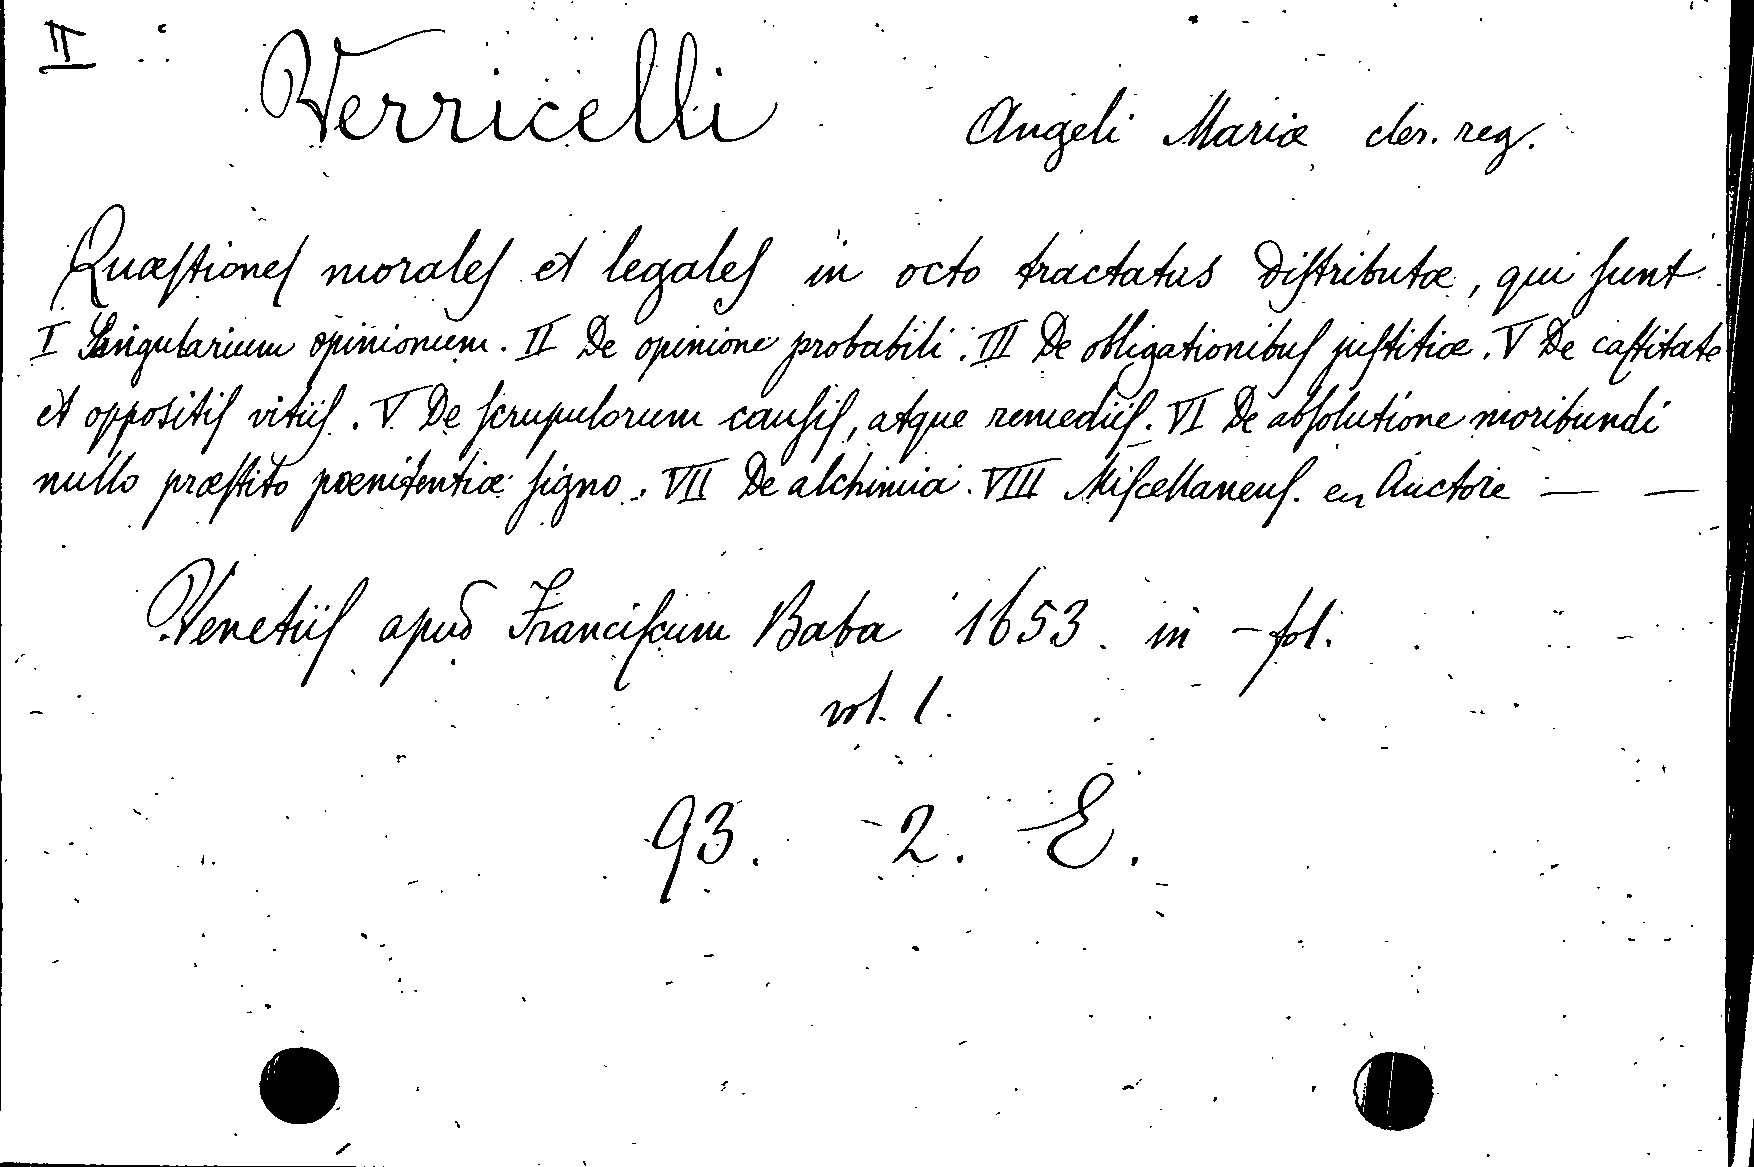 II
Verricelli Angeli Mariæ cler. reg.
Quæſtioneſ moraleſ et legaleſ in octo tractatus diſtributæ, qui ſunt
I Singularium opinionum. II De opinione probabili. III De obligationibuſ juſtitiæ. V De caſtitate
et oppositiſ vitiiſ. V De ſcrupulorum cauſiſ, atque remediiſ. VI De abſolutione moribundi
nullo præſtito pœnitentiæ ſigno. VII De alchimia. VIII Miſcellaneuſ. en Auctore — —
Venetiiſ apud Franciſcum Baba 1653. in-fol.
vol. 1.
93. 2. E.